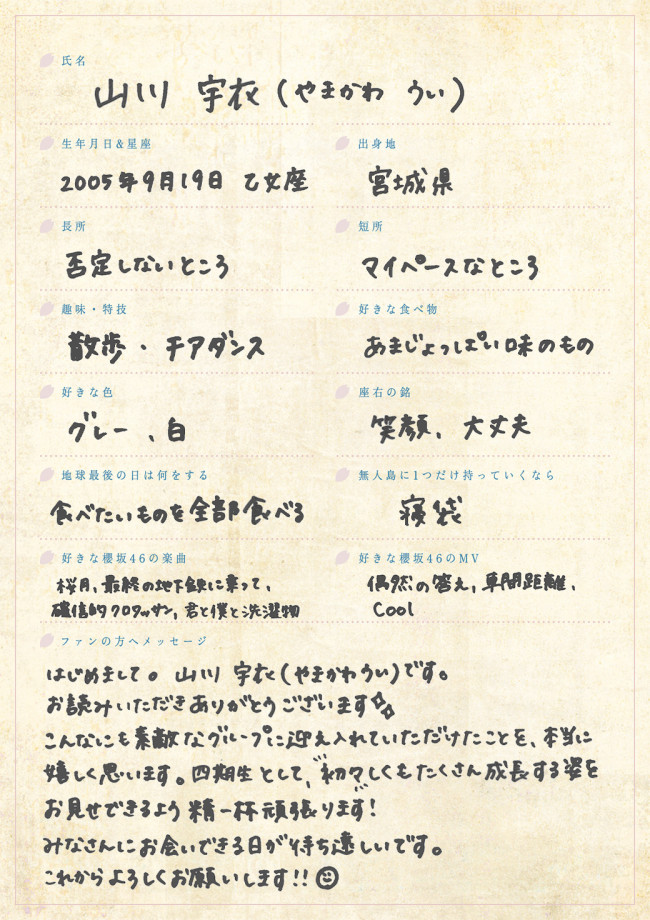 氏名
山川 宇衣(やまかわ うい)
生年月日&星座
出身地
2005年9月19日 乙女座
宮城県
長所
短所
否定しないところ
マイペースなところ
趣味・特技
好きな食べ物
散歩・チアダンス
あまじょっぱい味のもの
好きな色
座右の銘
グレー、白
笑顔、大丈夫
地球最後の日は何をする
無人島に1つだけ持っていくなら
食べたいものを全部食べる
寝袋
好きな櫻坂46の楽曲
好きな櫻坂46のMV
桜月、最終の地下鉄に乗って、
確信的クロワッサン、君と僕と洗濯物
偶然の答え、車間距離、
Cool
ファンの方へメッセージ
はじめまして。山川 宇衣(やまかわうい)です。
お読みいただきありがとうございます✨
こんなにも素敵なグループに迎え入れていただけたことを、本当に
嬉しく思います。四期生として、"初々しくもたくさん成長する姿を
お見せできるよう"精一杯頑張ります!
みなさんにお会いできる日が待ち遠しいです。
これからよろしくお願いします!!☺